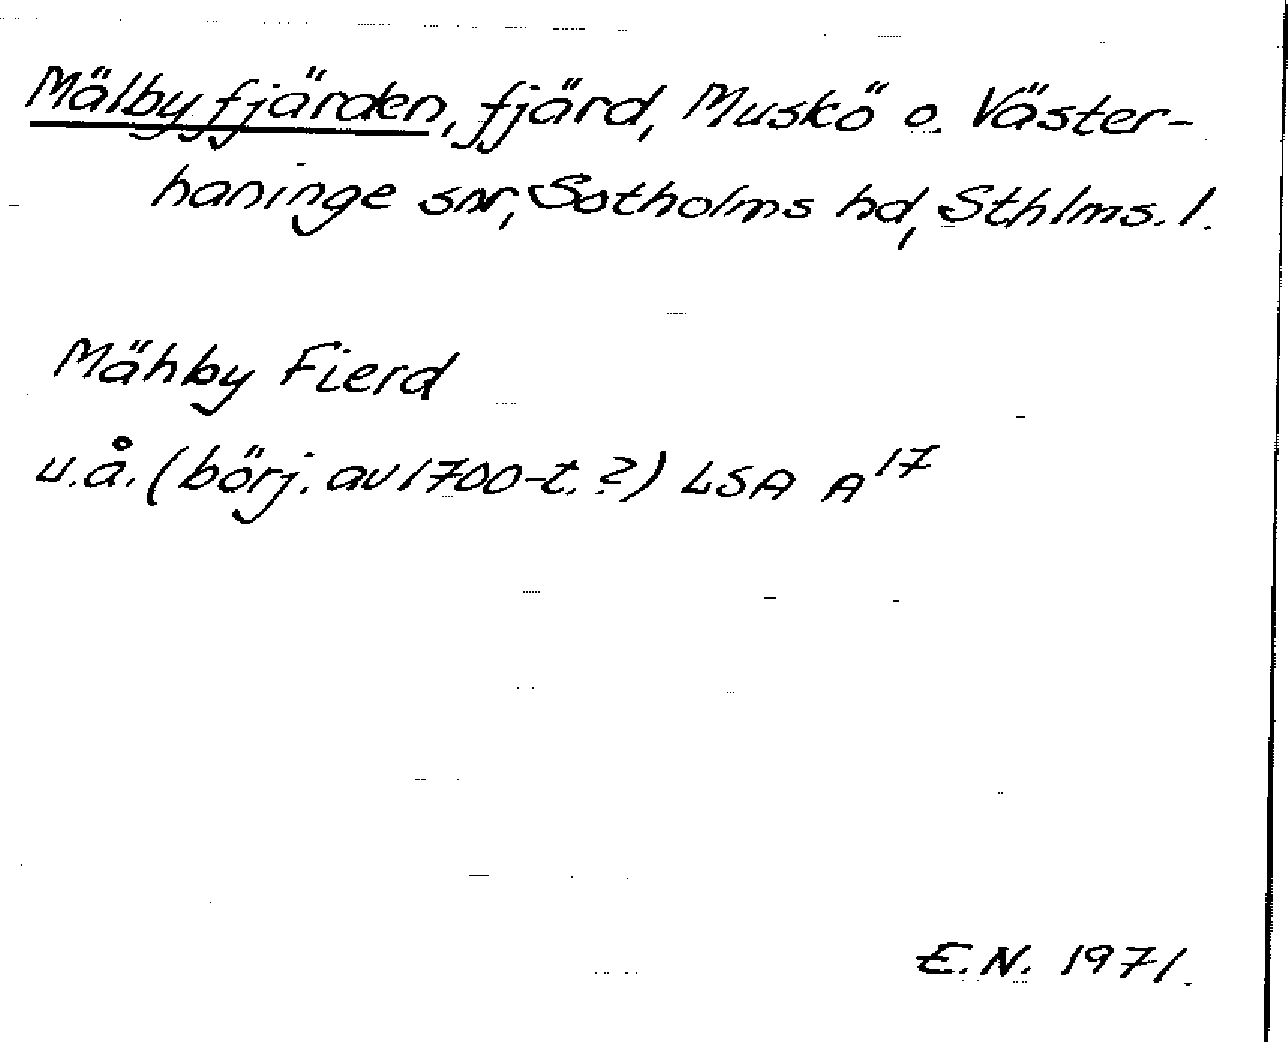 Mälbyfjärden, fjärd, Muskö o. Väster-
haninge snr, Sotholms hd, Sthlms. l.
Mähby Fierd
u.å. (börj. av 1700-t. ?) LSA A¹⁷
E.N. 1971.